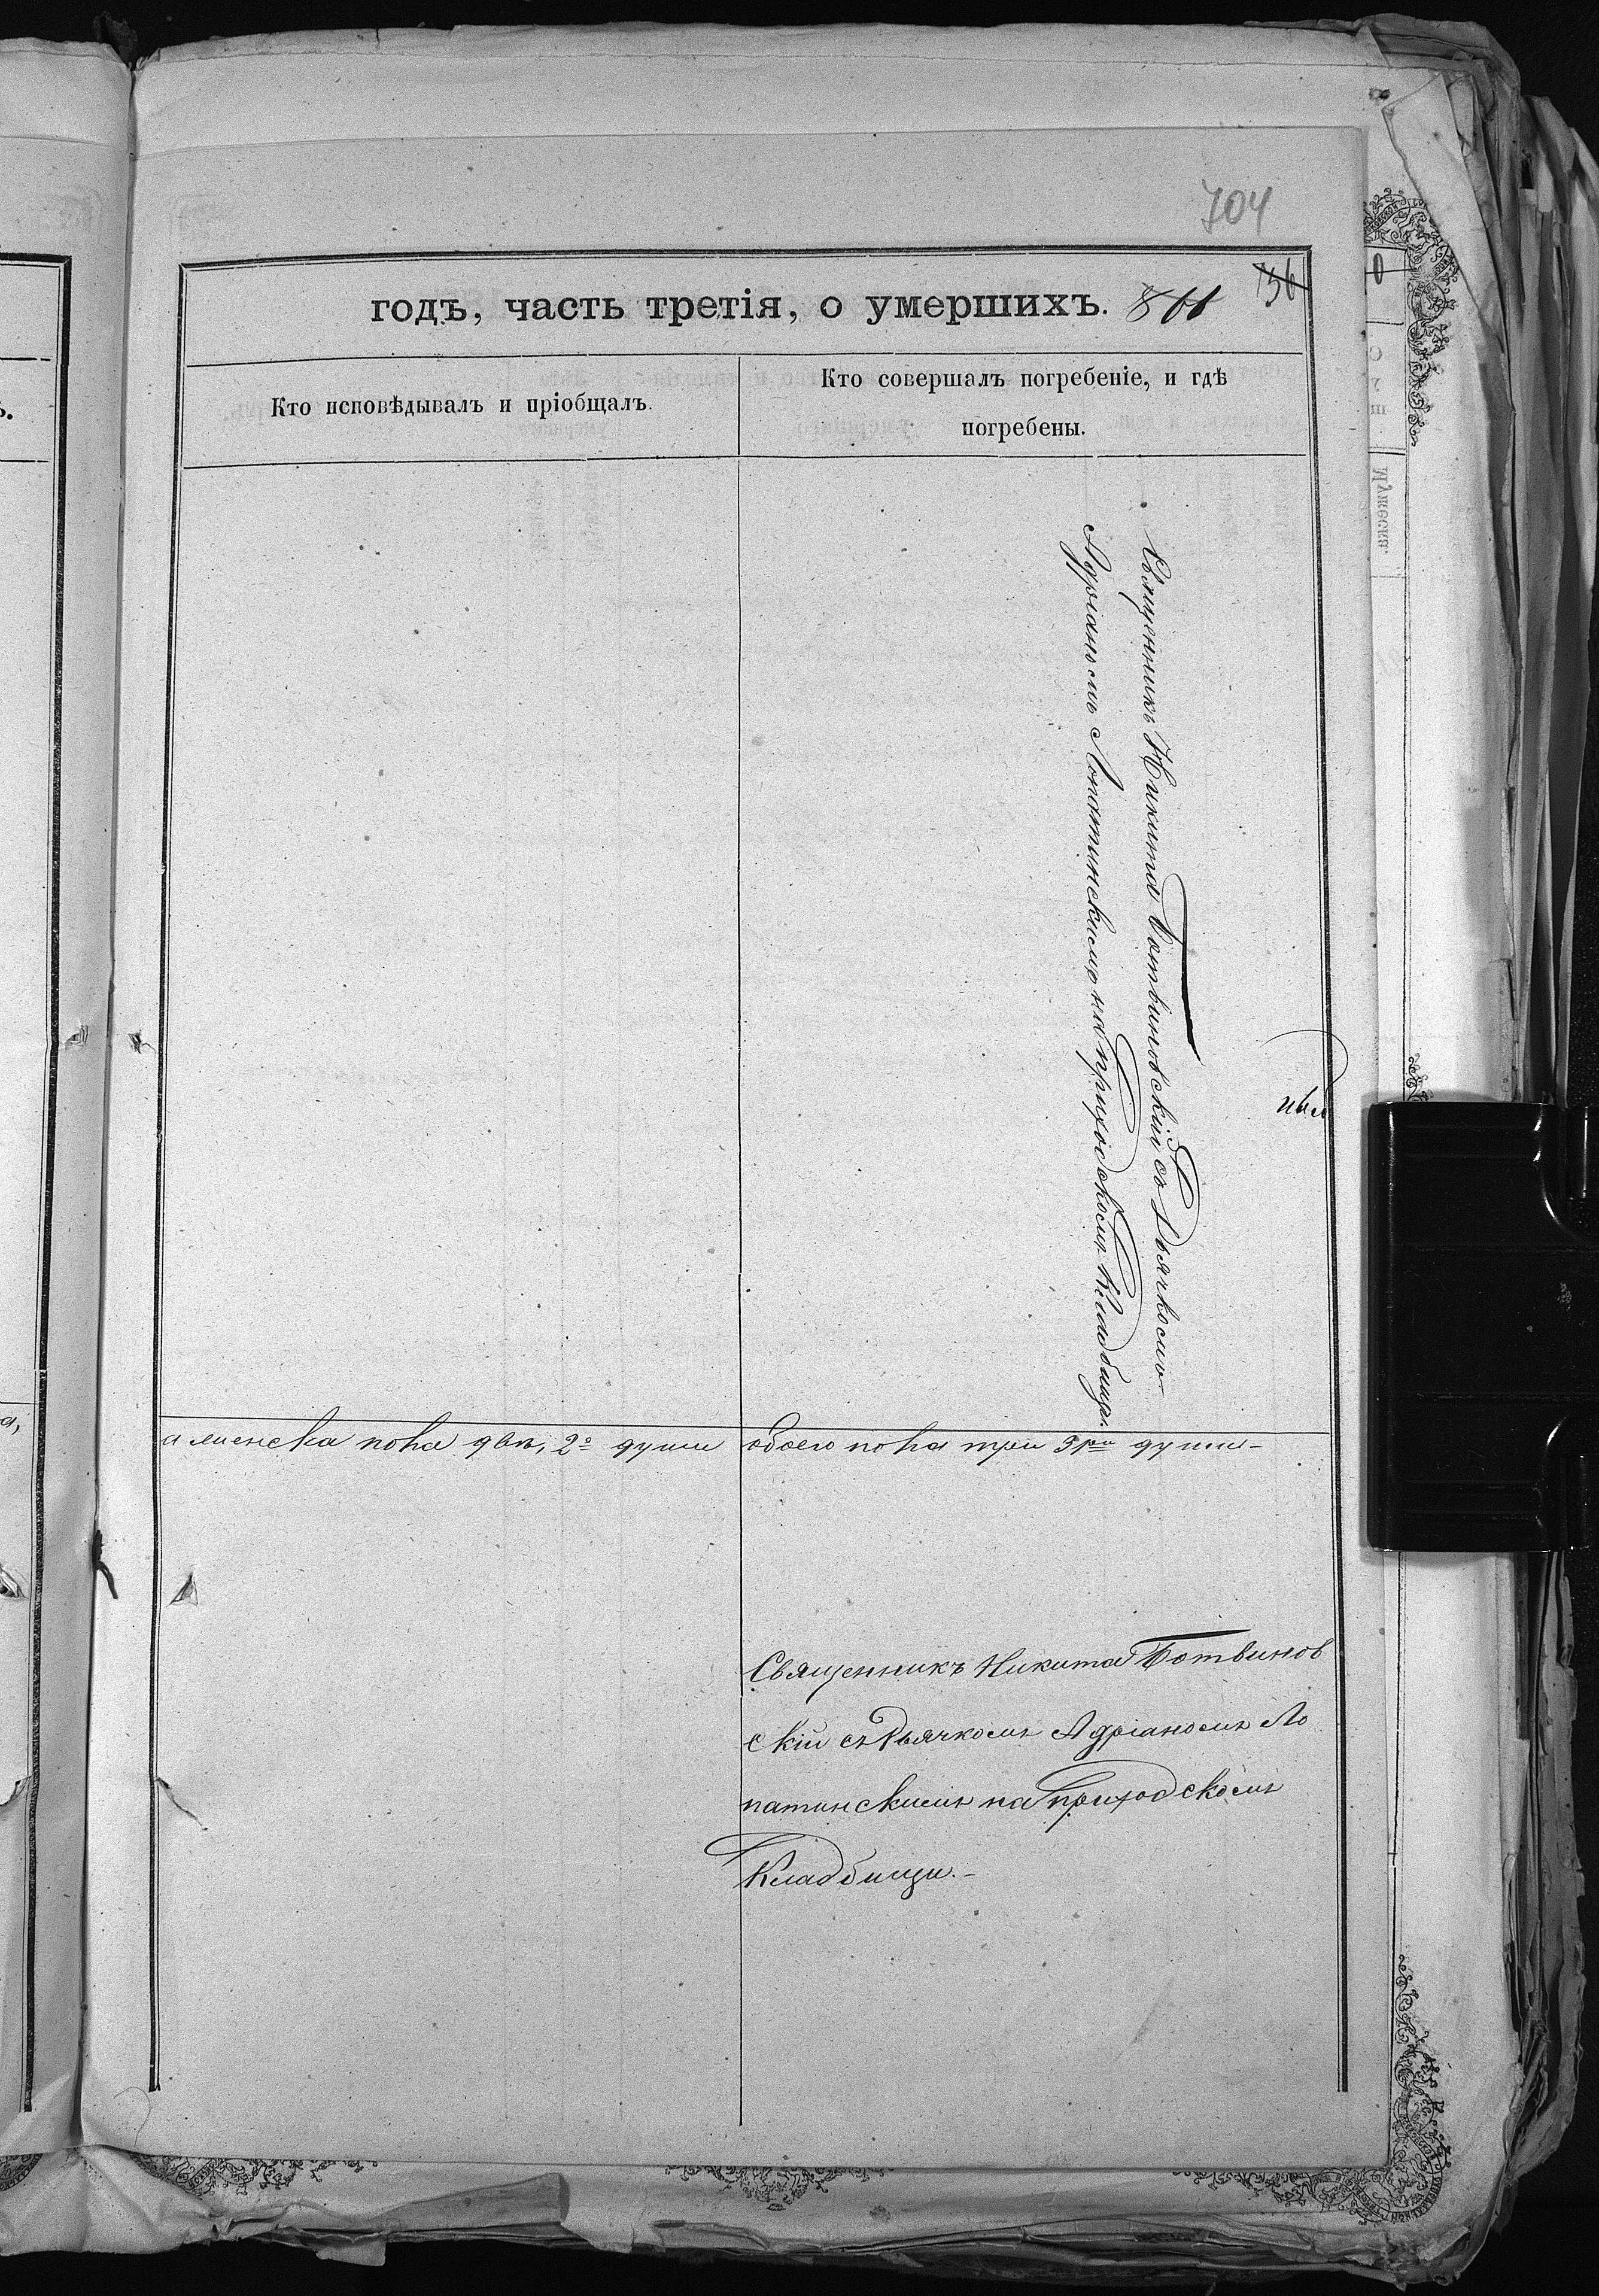 704
годъ, часть третія, о умершихъ. 811
Кто исповѣдывалъ и пріобщалъ.
Кто совершалъ погребеніе, и гдѣ
погребены.
Священникъ Никита Ботвиновскій съ Дьячкомъ
Адріаномъ Лопатинскимъ на приходскомъ Кладбищи.
а женска пола двѣ, 2ѣ души
обоего пола три 3ри души-
Священникъ Никита Ботвинов
скій съ Дьячкомъ Адріаномъ Ло
патинскимъ на Приходскомъ
Кладбищи.-